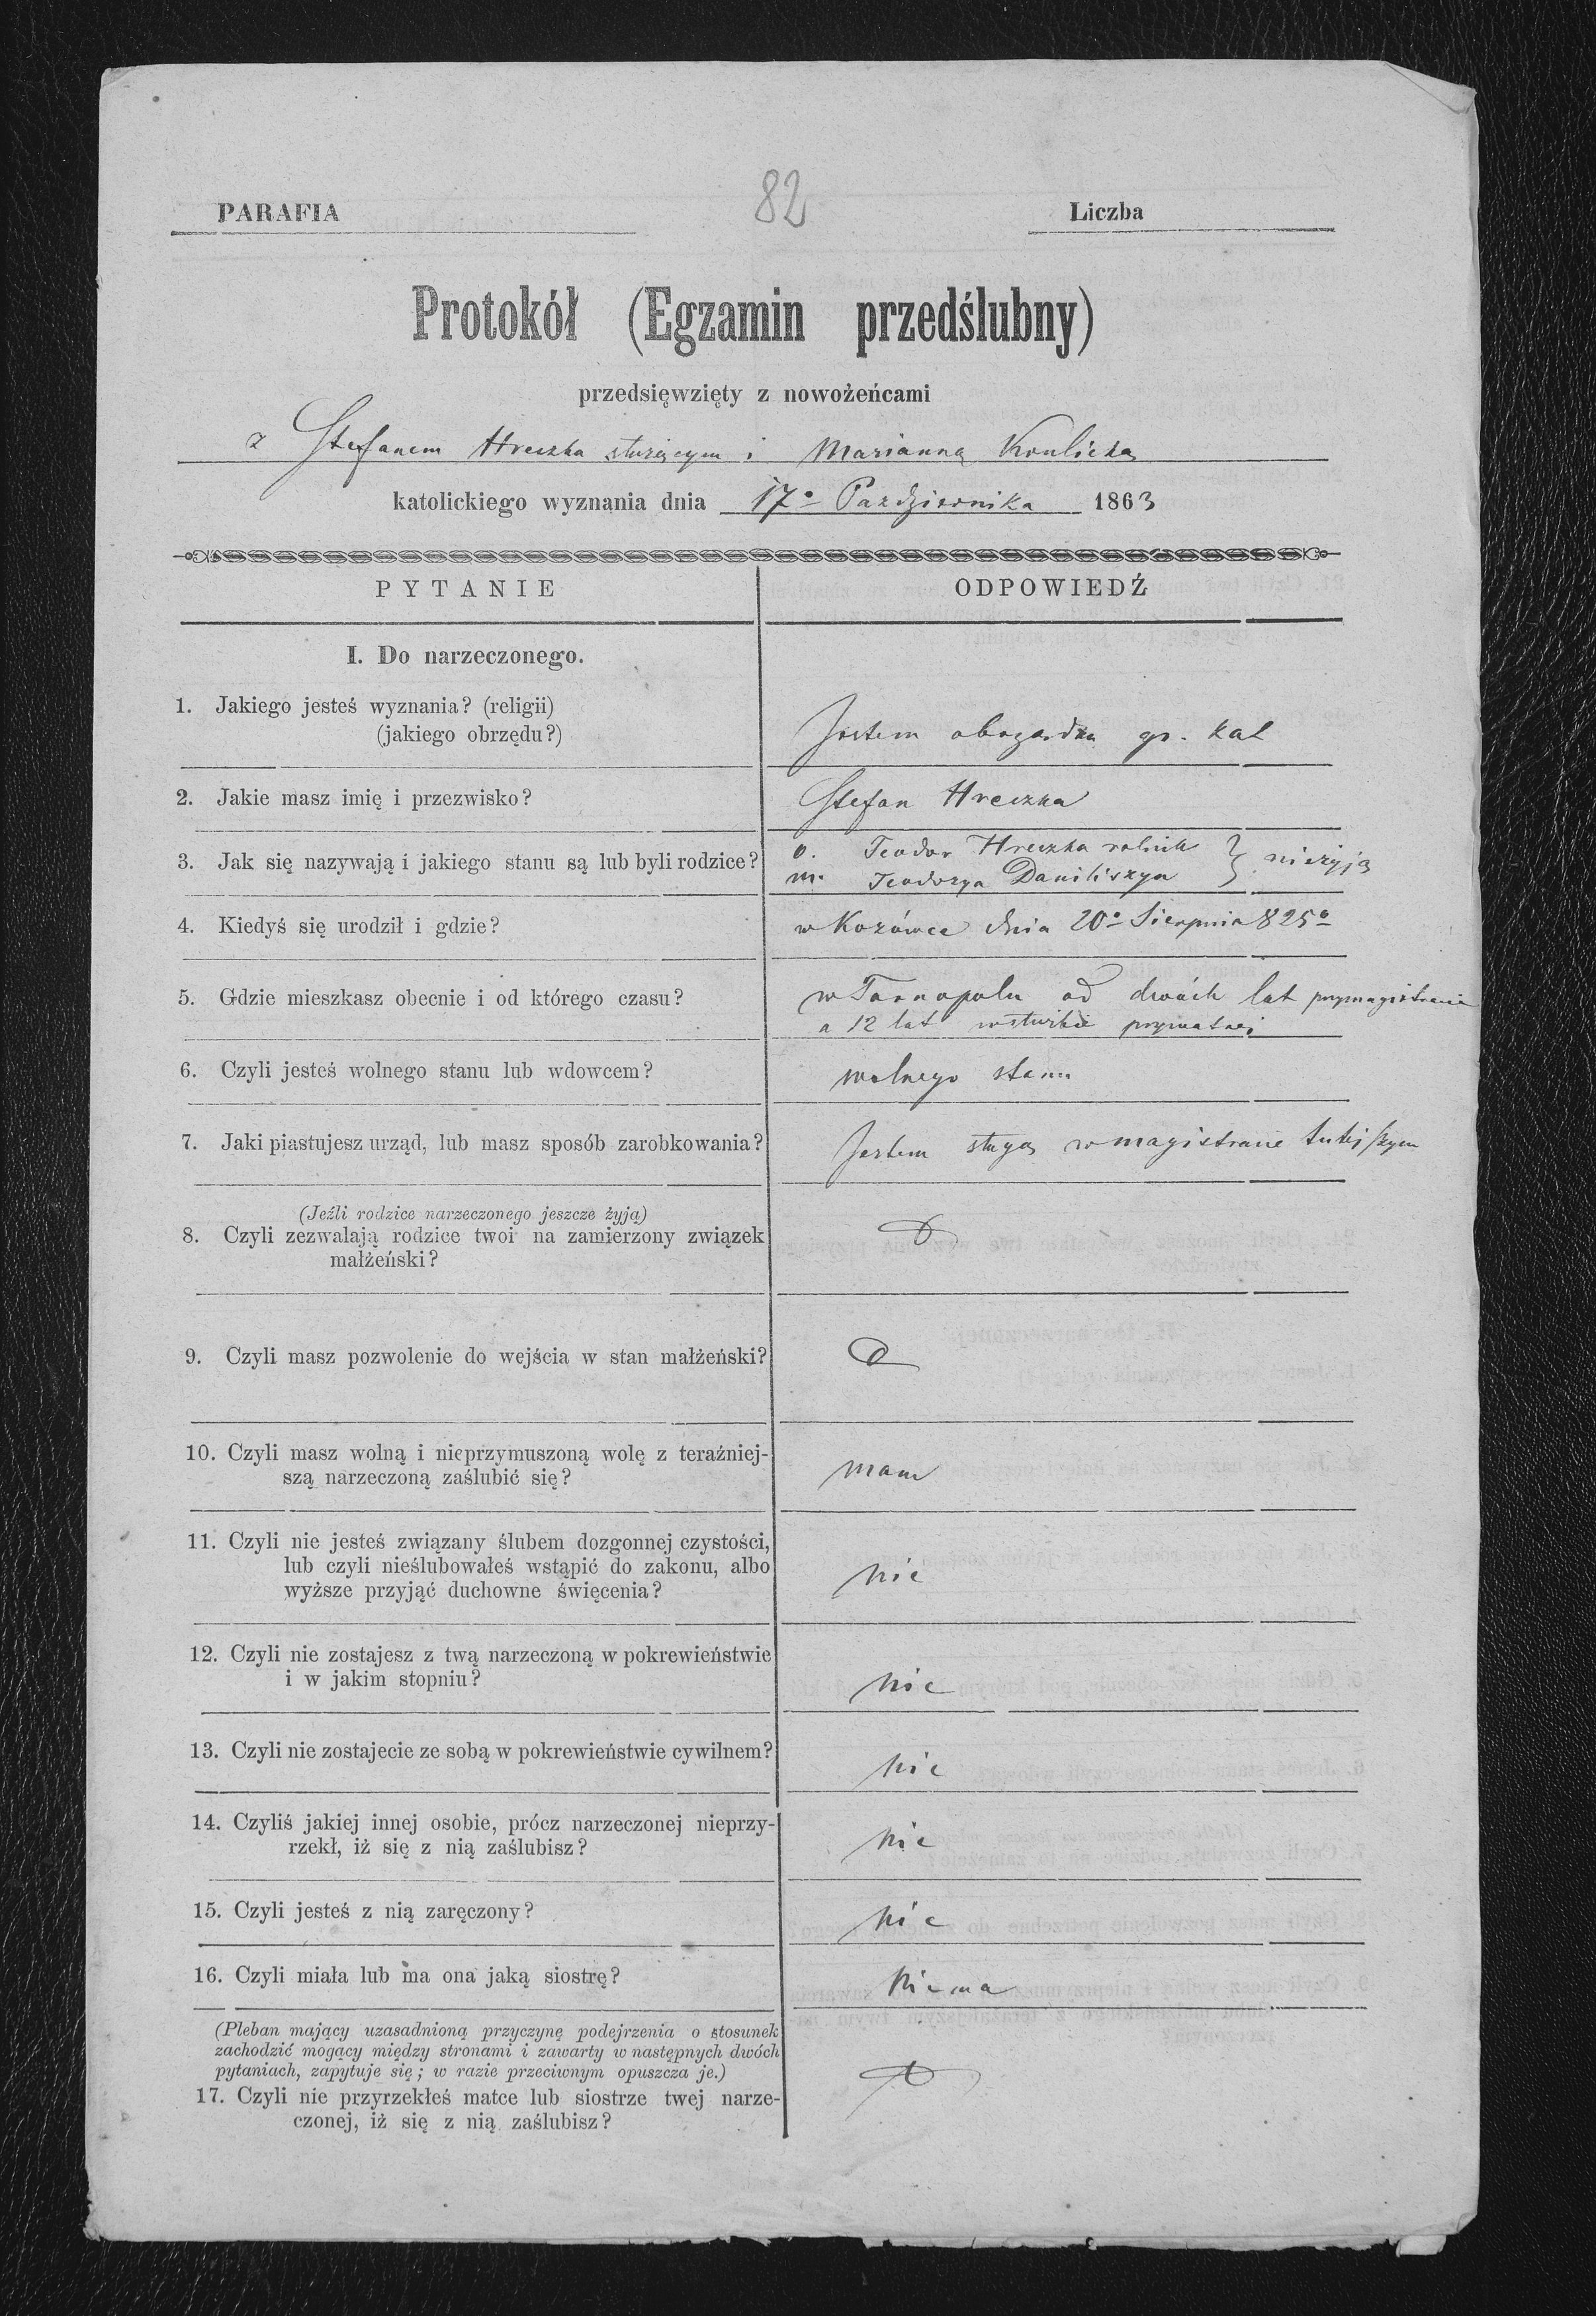 82
PARAFIA
Liczba
Protokół (Egzamin przedślubny)
przedsięwzięty z nowożeńcami
z Stefanem Hreczka służącym i Marianną
katolickiego wyznania dnia 17º Pazdziernika 1863
PYTANIE
ODPOWIEDŹ
I. Do narzeczonego.
1. Jakiego jesteś wyznania? (religii)
(jakiego obrzędu?)
Jestem obrządku gr. kat
2. Jakie masz imię i przezwisko?
Stefan Hreczka
3. Jak się nazywają i jakiego stanu są lub byli rodzice?
o. Teodor Hreczka rolnik } nieżyją
m. Teodozya Daniliszyn
4. Kiedyś się urodził i gdzie?
w Kozówce dnia 20º Sierpnia 825º
5. Gdzie mieszkasz obecnie i od którego czasu?
w Tarnopolu od dwóch lat przymagistracie
a 12 lat wsłużbie prywatnej
6. Czyli jesteś wolnego stanu lub wdowcem?
wolnego stanu
7. Jaki piastujesz urząd, lub masz sposób zarobkowania?
Jestem sługą wmagistracie tutejszym
(Jeźli rodzice narzeczonego jeszcze żyją)
8. Czyli zezwalają rodzice twoi na zamierzony związek
małżeński?
9. Czyli masz pozwolenie do wejścia w stan małżeński?
10. Czyli masz wolną i nieprzymuszoną wolę z teraźniej-
szą narzeczoną zaślubić się?
mam
11. Czyli nie jesteś związany ślubem dozgonnej czystości,
lub czyli nieślubowałeś wstąpić do zakonu, albo
wyższe przyjąć duchowne święcenia?
nie
12. Czyli nie zostajesz z twą narzeczoną w pokrewieństwie
i w jakim stopniu?
nie
13. Czyli nie zostajecie ze sobą w pokrewieństwie cywilnem?
nie
14. Czyliś jakiej innej osobie, prócz narzeczonej nieprzy-
rzekł, iż się z nią zaślubisz?
nie
15. Czyli jesteś z nią zaręczony?
nie
16. Czyli miała lub ma ona jaką siostrę?
niema
(Pleban mający uzasadnioną przyczynę podejrzenia o stosunek
zachodzić mogący między stronami i zawarty w następnych dwóch
pytaniach, zapytuje się; w razie przeciwnym opuszcza je.)
17. Czyli nie przyrzekłeś matce lub siostrze twej narze-
czonej, iż się z nią zaślubisz?